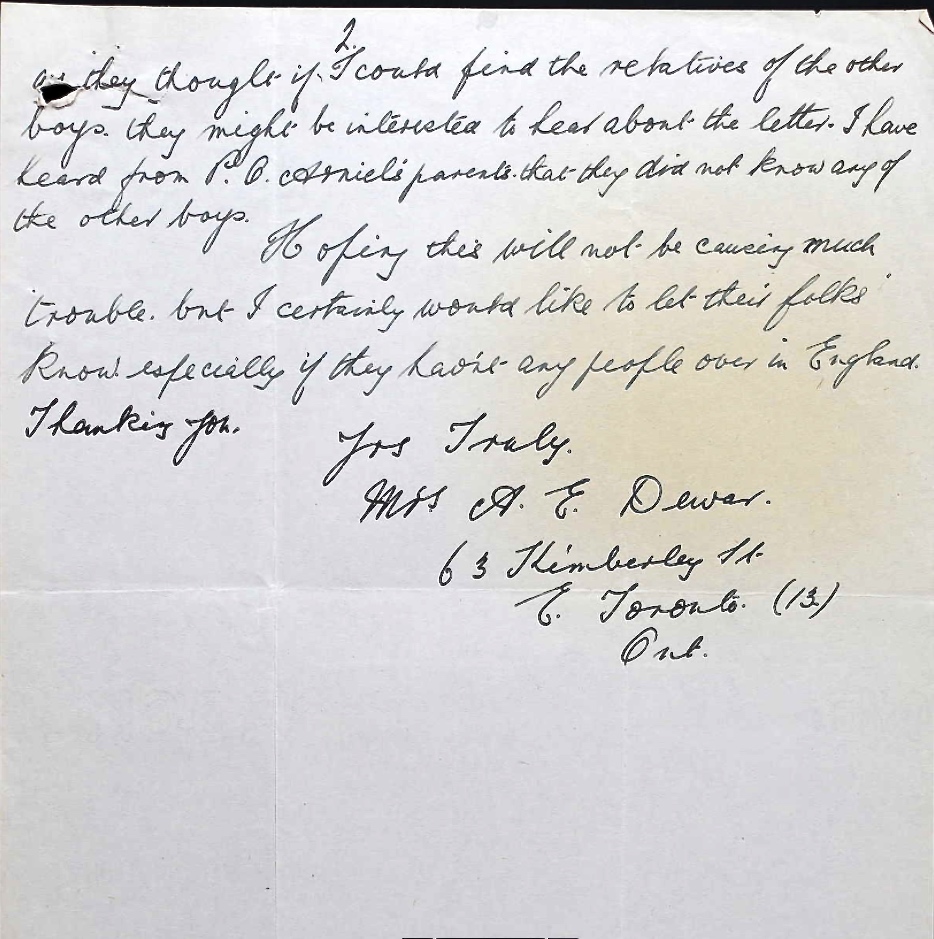 2.
as they thought if I could find the relatives of the other
boys. they might be interested to hear about the letter. I have
heard from P. O. Arniel's parents. that they did not know any of
the other boys.
Hoping this will not be causing much
trouble. but I certainly would like to let their folks
know. especially if they hav'nt any people over in England.
Thanking you.
Yrs Truly.
Mrs A. E. Dewar.
63 Kimberley St
E. Toronto. (13)
Ont.